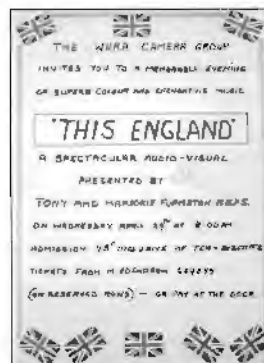 THE WURA CAMERA GROUP
INVITES YOU TO A MEMORABLE EVENING
OF SUPERB COLOUR AND EVOCATIVE MUSIC
"THIS ENGLAND"
A SPECTACULAR AUDIO-VISUAL
PRESENTED BY
TONY AND MARJORIE
ON WEDNESDAY APRIL AT 8:00PM
ADMISSION INCLUSIVE OF TEA + BISCUITS
TICKETS FROM M
(OR RESERVED ROWS) — OR PAY AT THE DOOR